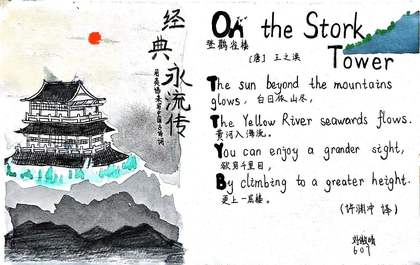 经典
永流传
On the Stork
登鹳雀楼
Tower
[唐] 王之涣
The sun beyond the mountains
glows. 白日依山尽,
The Yellow River seawards flows.
黄河入海流。
You can enjoy a grander sight,
欲穷千里目,
By climbing to a greater height.
更上一层楼。
(许渊冲 译)
607